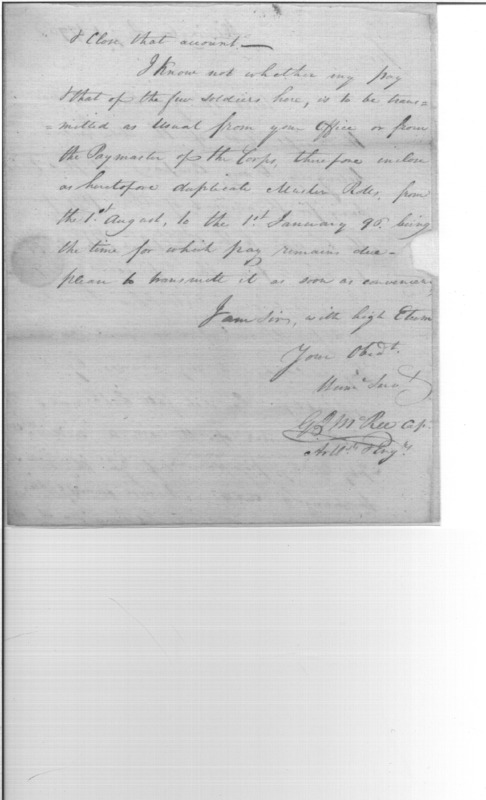 & Close that account —
I Know not whether my pay
& that of the few soldiers here, is to be trans=
=mitted as Usual from your Office or from
the Paymaster of the Corps, therefore inclose
as heretofore duplicate Muster Rolls, from
the 1st August, to the 1st January 96. being
the time for which pay remains due —
please to transmit it as soon as convenient,
I am Sir, with high Esteem
Your Obedt.
Hume Servt
G J McRee Cap.
Artts & Engs